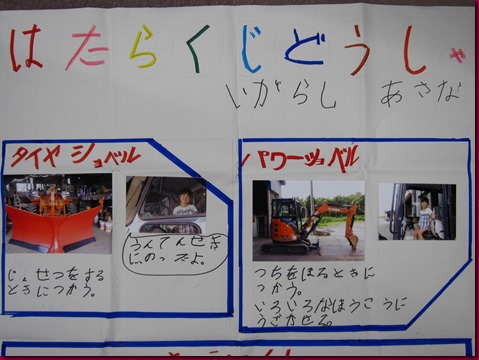 はたらくじどうしゃ
いがらし あさな
タイヤショベル
うんてんせき
にのったよ。
じょせつをする
ときにつかう。
パワーショベル
つちをほるときに
つかう。
いろいろなほうこうに
うごかせる。